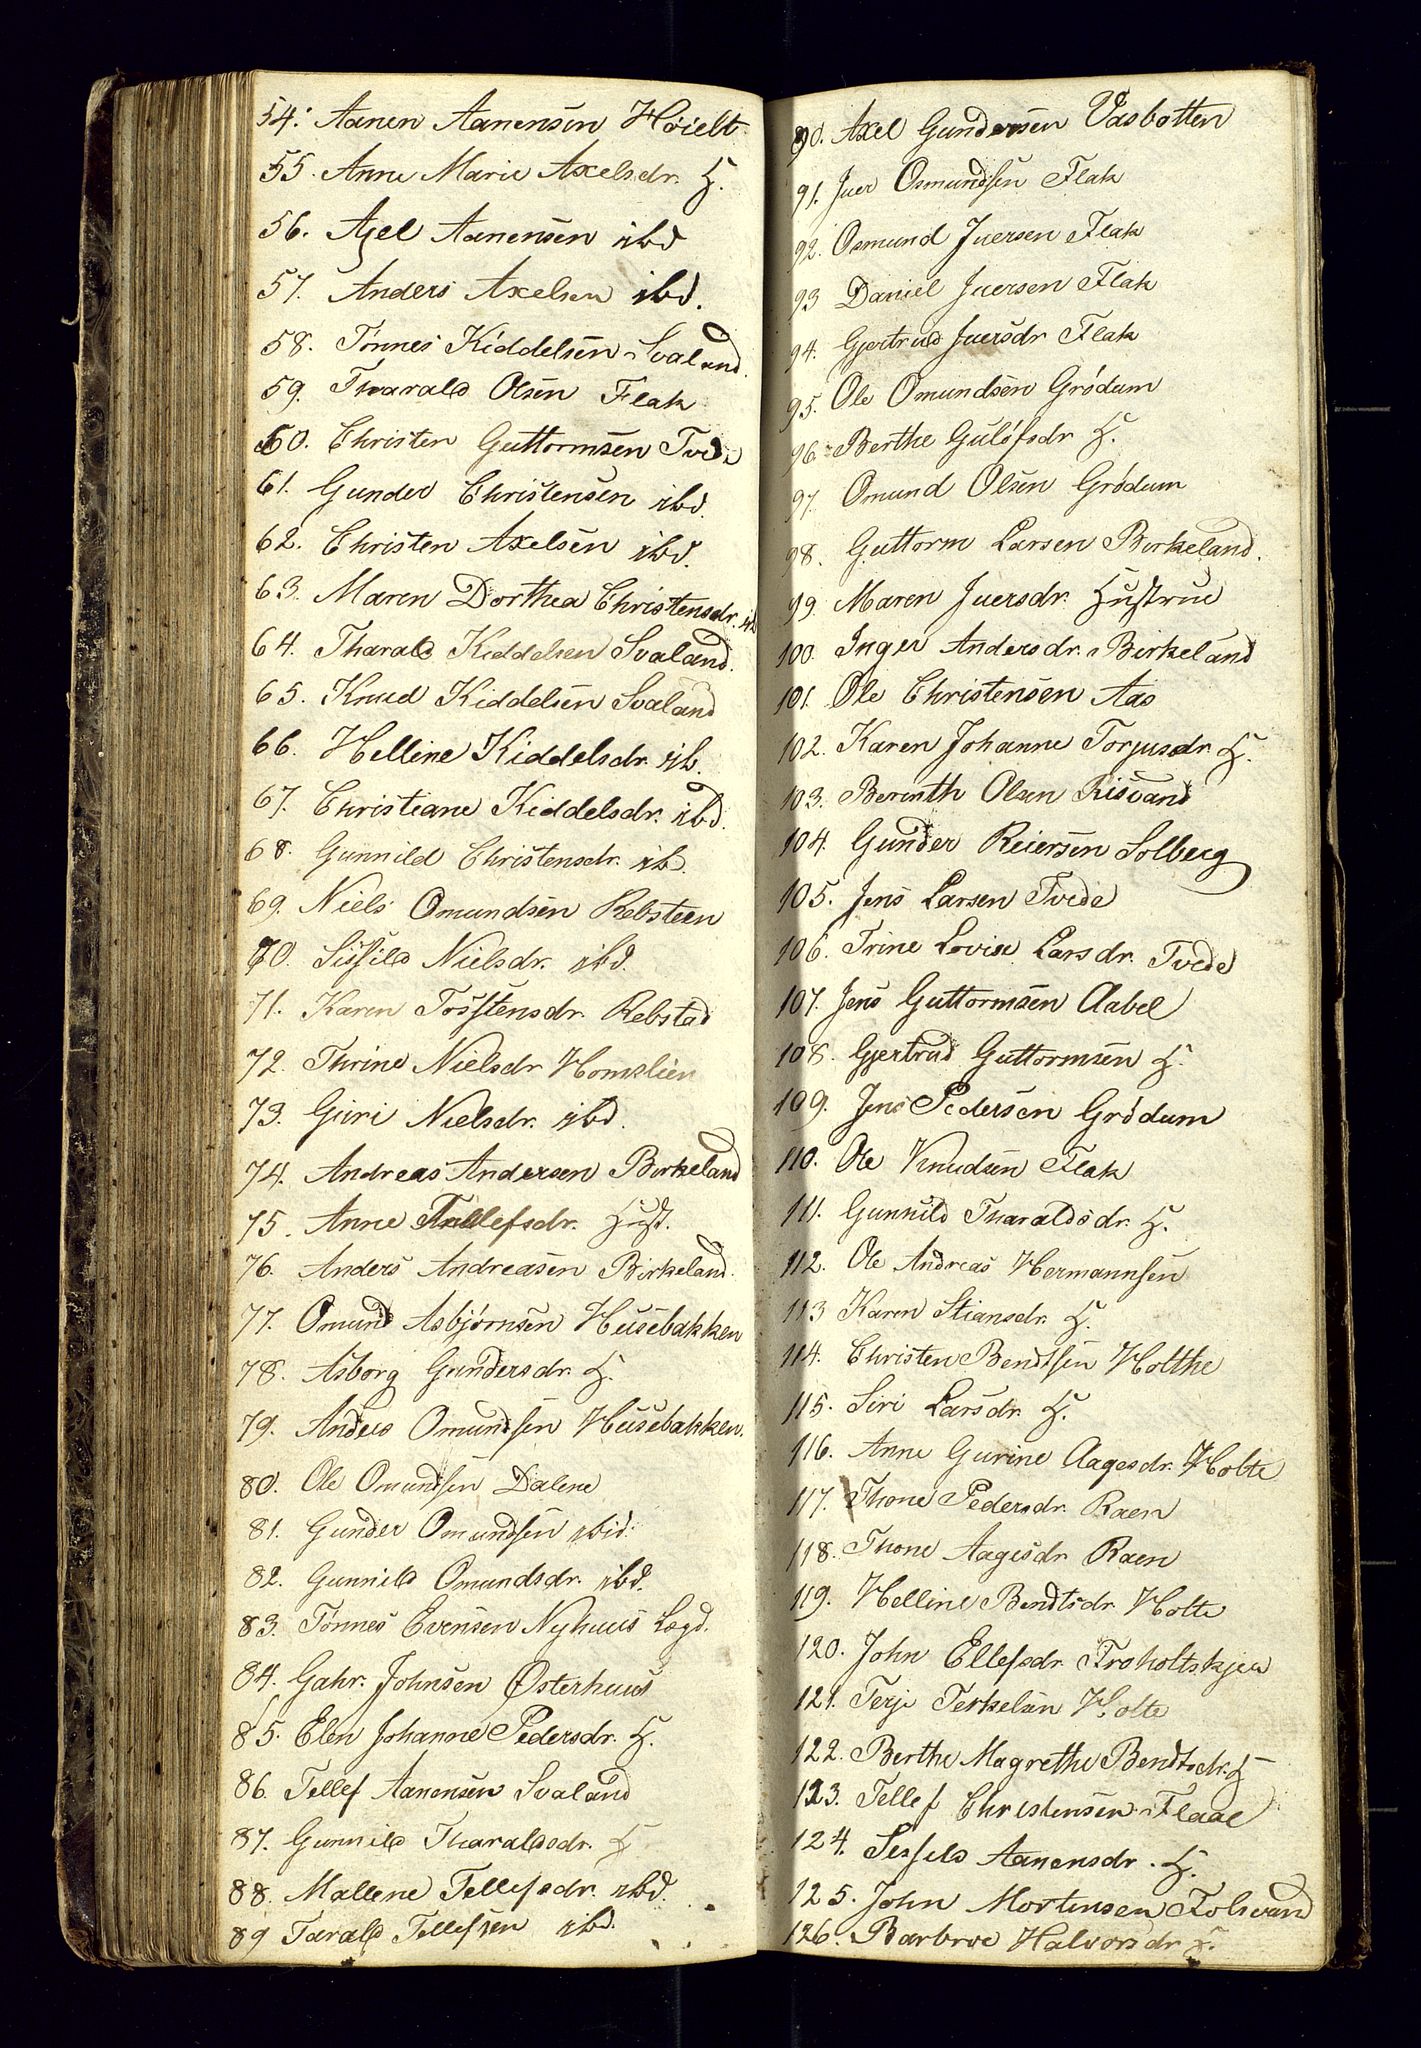 54. Aanen Aanensen Høielt
55. Anne Marie Axelsdr. H.
56. Axel Aanensen ibd
57. Anders Axelsen ibd.
58. Tönnes Kiddelsen Svaland.
59. Tharald Olsen Flak
60. Christen Guttormsen Tvede
61. Gunder Christensen ibd.
62. Christen Axelsen ibd.
63. Maren Dorthea Christensdr. ib
64. Tharald Kiddelsen Svaland.
65. Knud Kiddelsen Svaland
66. Helline Kiddelsdr. ib.
67. Christiane Kiddelsdr. ibd.
68. Gunnild Christensdr. ib.
69. Niels Omundsen Rebsteen
70. Sisfild Nielsdr. ibd.
71. Karen Tosstensdr. Rebstad
72. Thrine Nielsdr Homslien
73. Giuri Nielsdr. ibd.
74. Andreas Andersen Birkeland
75. Anne Tellefsdr. Hust.
76. Anders Andreasen Birkeland.
77. Omund Asbjørnsen Husebakken
78. Asborg Gundersdr. H.
79. Anders Omundsen Husebakken.
80. Ole Omundsen Dalene
81. Gunder Omundsen ibid.
82. Gunnild Omundsdr. ibd.
83. Tönnes Evensen Nyhuus Lægd.
84. Gahr. Johnsen Østerhuus
85. Elen Johanne Pedersdr. H.
86. Tellef Aanensen Svaland
87. Gunnild Tharaldsdr. H
88. Mallene Tellefsdr. ibd.
89 Tarald Tellefsen ibd.
90. Axel Gundersen Vasbotten
91. Iver Osmundsen Flak
92. Osmund Iversen Flak
93 Daniel Iversen Flak
94. Gjertrud Iversdr Flak
95. Ole Omundsen Grödum
96. Berthe Gulöfsdr H.
97. Omund Olsen Grødum
98. Guttorm Larsen Birkeland.
99 Maren Iversdr. Hustrue
100. Inger Andersdr. Birkeland
101. Ole Christensen Aas
102. Karen Johanne Torjusdr. H.
103. Berinth Olsen Risvand
104. Gunder Reiersen Solberg
105. Jens Larsen Tvede
106. Trine Lovise Larsdr. Tvede
107. Jens Guttormsen Aabel
108. Gjertrud Guttormsen H.
109. Jens Pedersen Grödum
110. Ole Knudsen Flak
111. Gunnild Tharaldsdr. H.
112. Ole Andreas Hermannsen
113 Karen Stiansdr. H.
114. Christen Bendtsen Holthe
115. Siri Larsdr. H.
116. Anne Gurine Aagesdr. Holte
117. Thone Pedersdr. Raen
118. Thone Aagesdr Raen
119. Helline Bendtsdr. Holte
120. John Ellefsdr. Troholtskjer
121. Terje Terkelsen Holte
122. Berthe Magrethe Bendtsdr. H
123. Tellef Christensen Flaae
124. Sisfild Aanensdr. H.
125. John Mortensen Tolsvand
126. Barbroe Halvorsdr H.